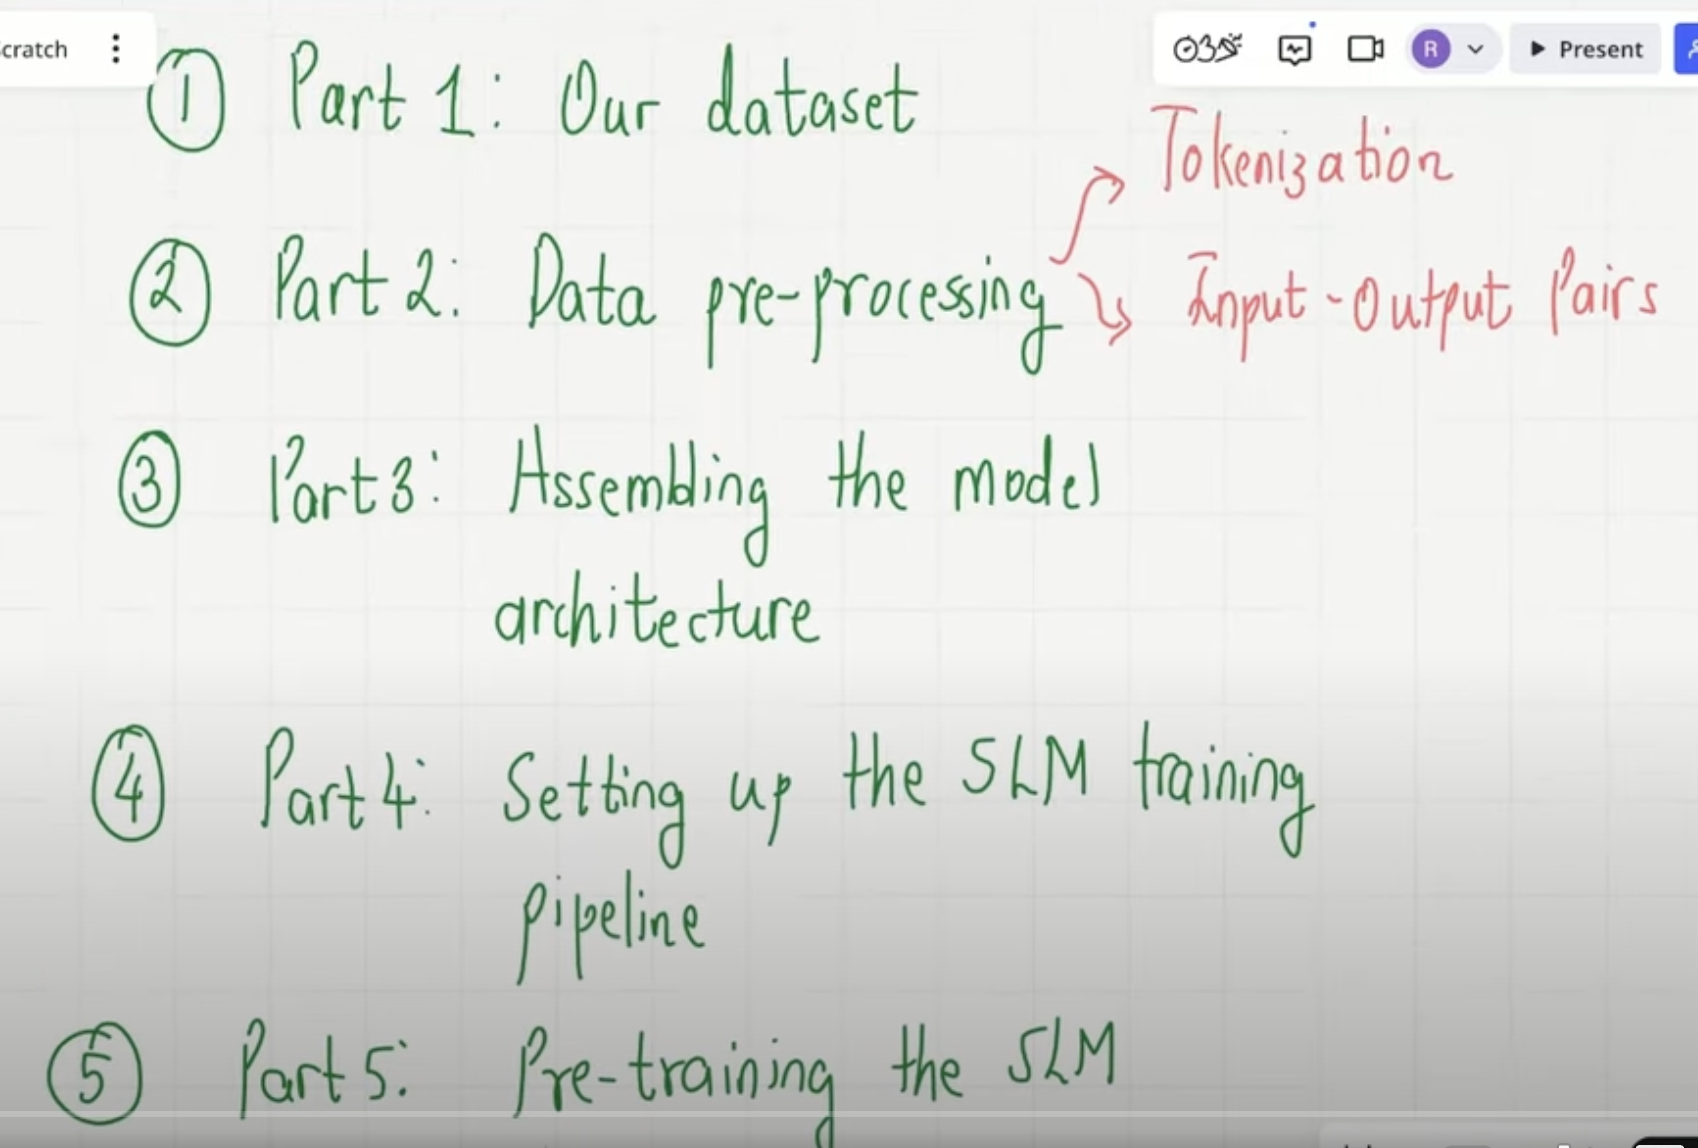 cratch
Present
R
① Part 1: Our dataset
Tokenization
② Part 2: Data pre-processing
Input-Output Pairs
③ Part 3: Assembling the model
architecture
④ Part 4: Setting up the SLM training
pipeline
⑤ Part 5: Pre-training the SLM